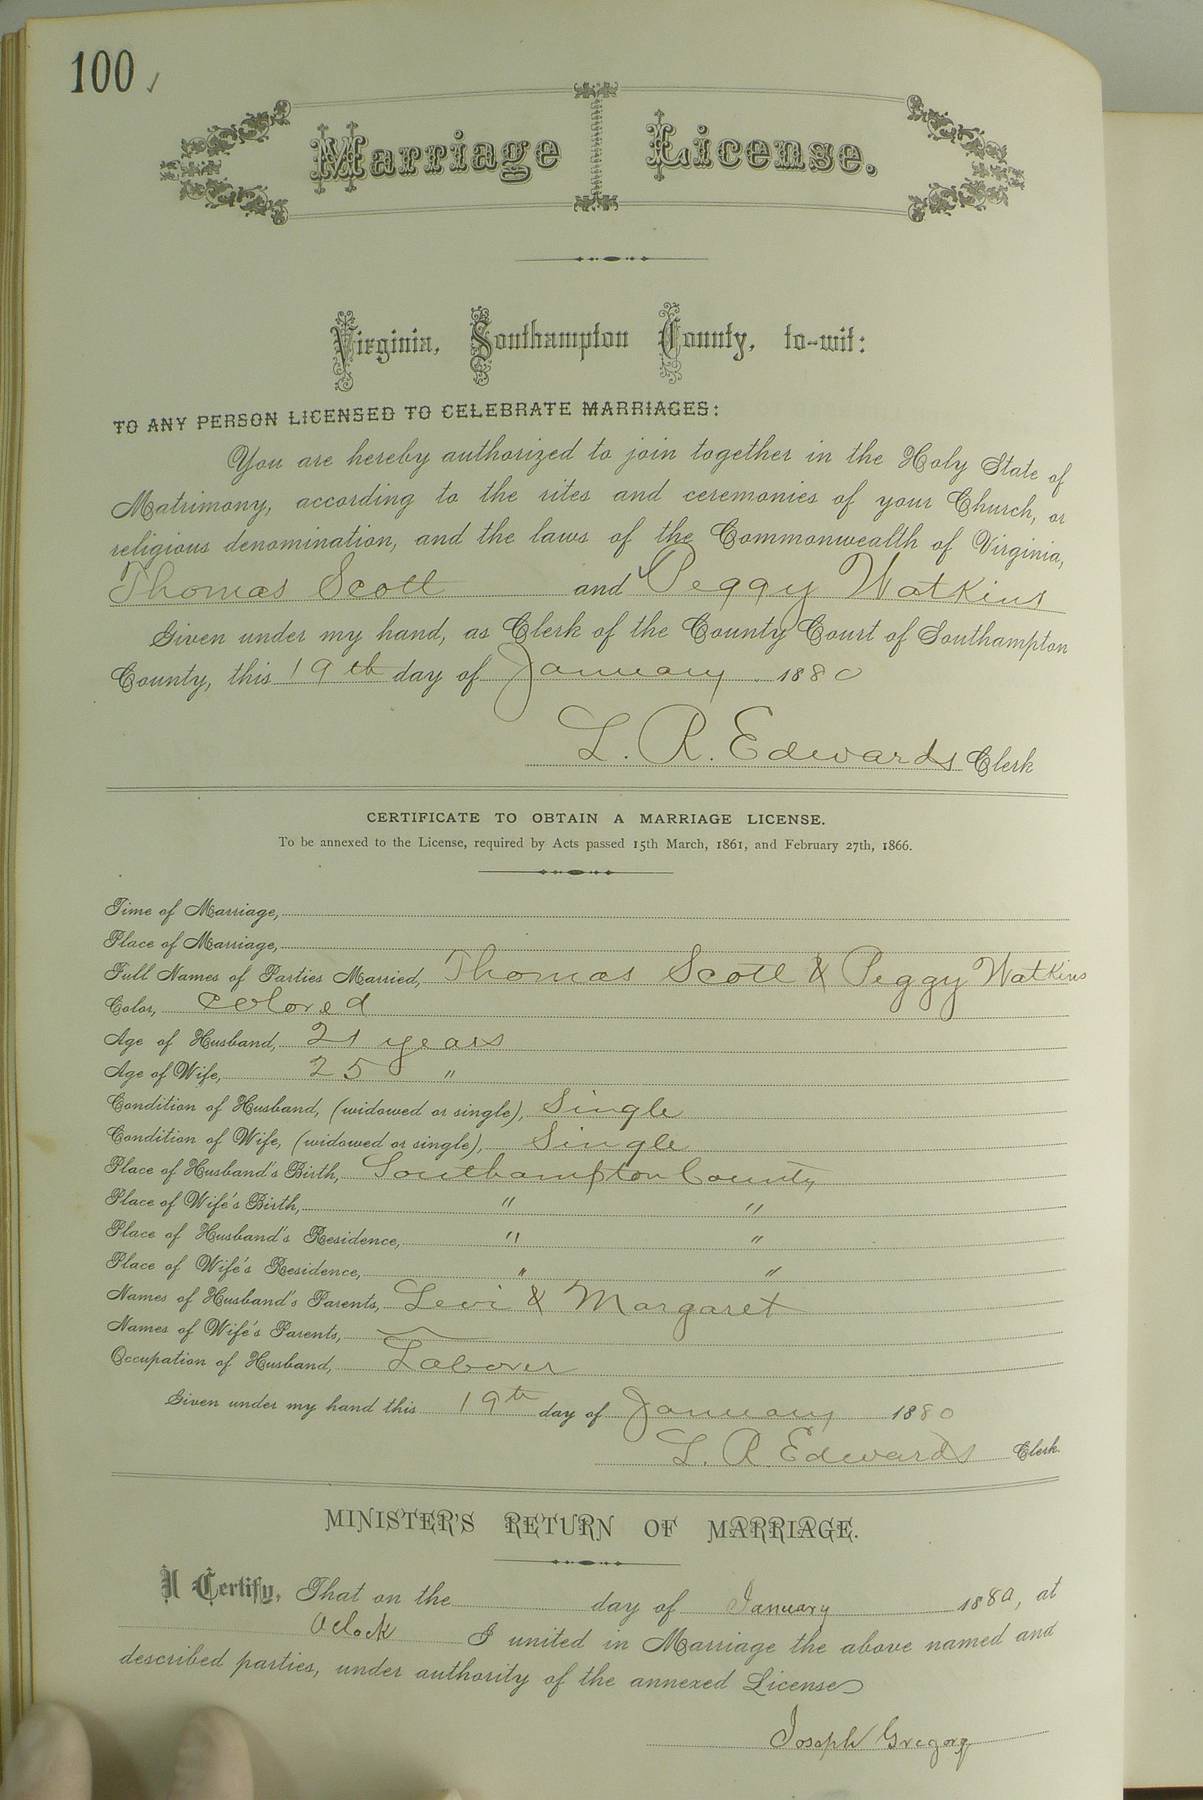 100 ✓
Marriage License.
Virginia, Southampton County, to-wit:
TO ANY PERSON LICENSED TO CELEBRATE MARRIAGES:
You are hereby authorized to join together in the Holy State of
Matrimony, according to the rites and ceremonies of your Church, or
religious denomination, and the laws of the Commonwealth of Virginia,
Thomas Scott and Peggy Watkins
Given under my hand, as Clerk of the County Court of Southampton
County, this 19th day of January 1880
L. R. Edwards Clerk
CERTIFICATE TO OBTAIN A MARRIAGE LICENSE.
To be annexed to the License, required by Acts passed 15th March, 1861, and February 27th, 1866.
Time of Marriage,
Place of Marriage,
Full Names of Parties Married, Thomas Scott & Peggy Watkins
Color, colored
Age of Husband, 21 years
Age of Wife, 25 "
Condition of Husband, (widowed or single), Single
Condition of Wife, (widowed or single), Single
Place of Husband's Birth, Southampton County
Place of Wife's Birth, " "
Place of Husband's Residence, " "
Place of Wife's Residence, " "
Names of Husband's Parents, Levi & Margaret
Names of Wife's Parents,
Occupation of Husband, Laborer
Given under my hand this 19th day of January 1880
L. R Edwards Clerk.
MINISTER'S RETURN OF MARRIAGE.
I Certify, That on the day of January 1880, at
Oclock I united in Marriage the above named and
described parties, under authority of the annexed License
Joseph Gregory